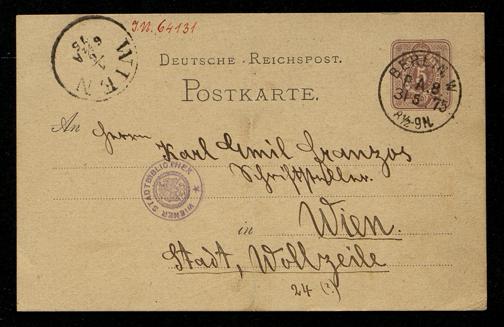 J.N. 64131
WIEN
1/6
6½A
75
DEUTSCHE REICHSPOST.
BERLIN, W
P.A.8
31 5 75
8½-9N.
POSTKARTE.
An Herrn
Karl Emil Franzos
Schriftsteller.
WIENER STADTBIBLIOTHEK
in Wien.
Stadt, Wollzeile
24 (?)